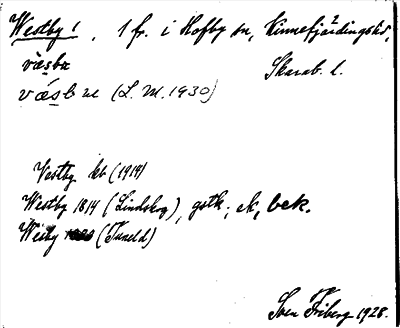 Westby 1, 1 fr. i Hofby sn, Kinnefjärdings hd,
väsba Skarab. l.
väsbæ (L. M. 1930)
Vestby kb (1919)
Westby 1814 (Lindskog), gstk; ek, bek.
Wesby (Tuneld)
Sven Friberg 1928.